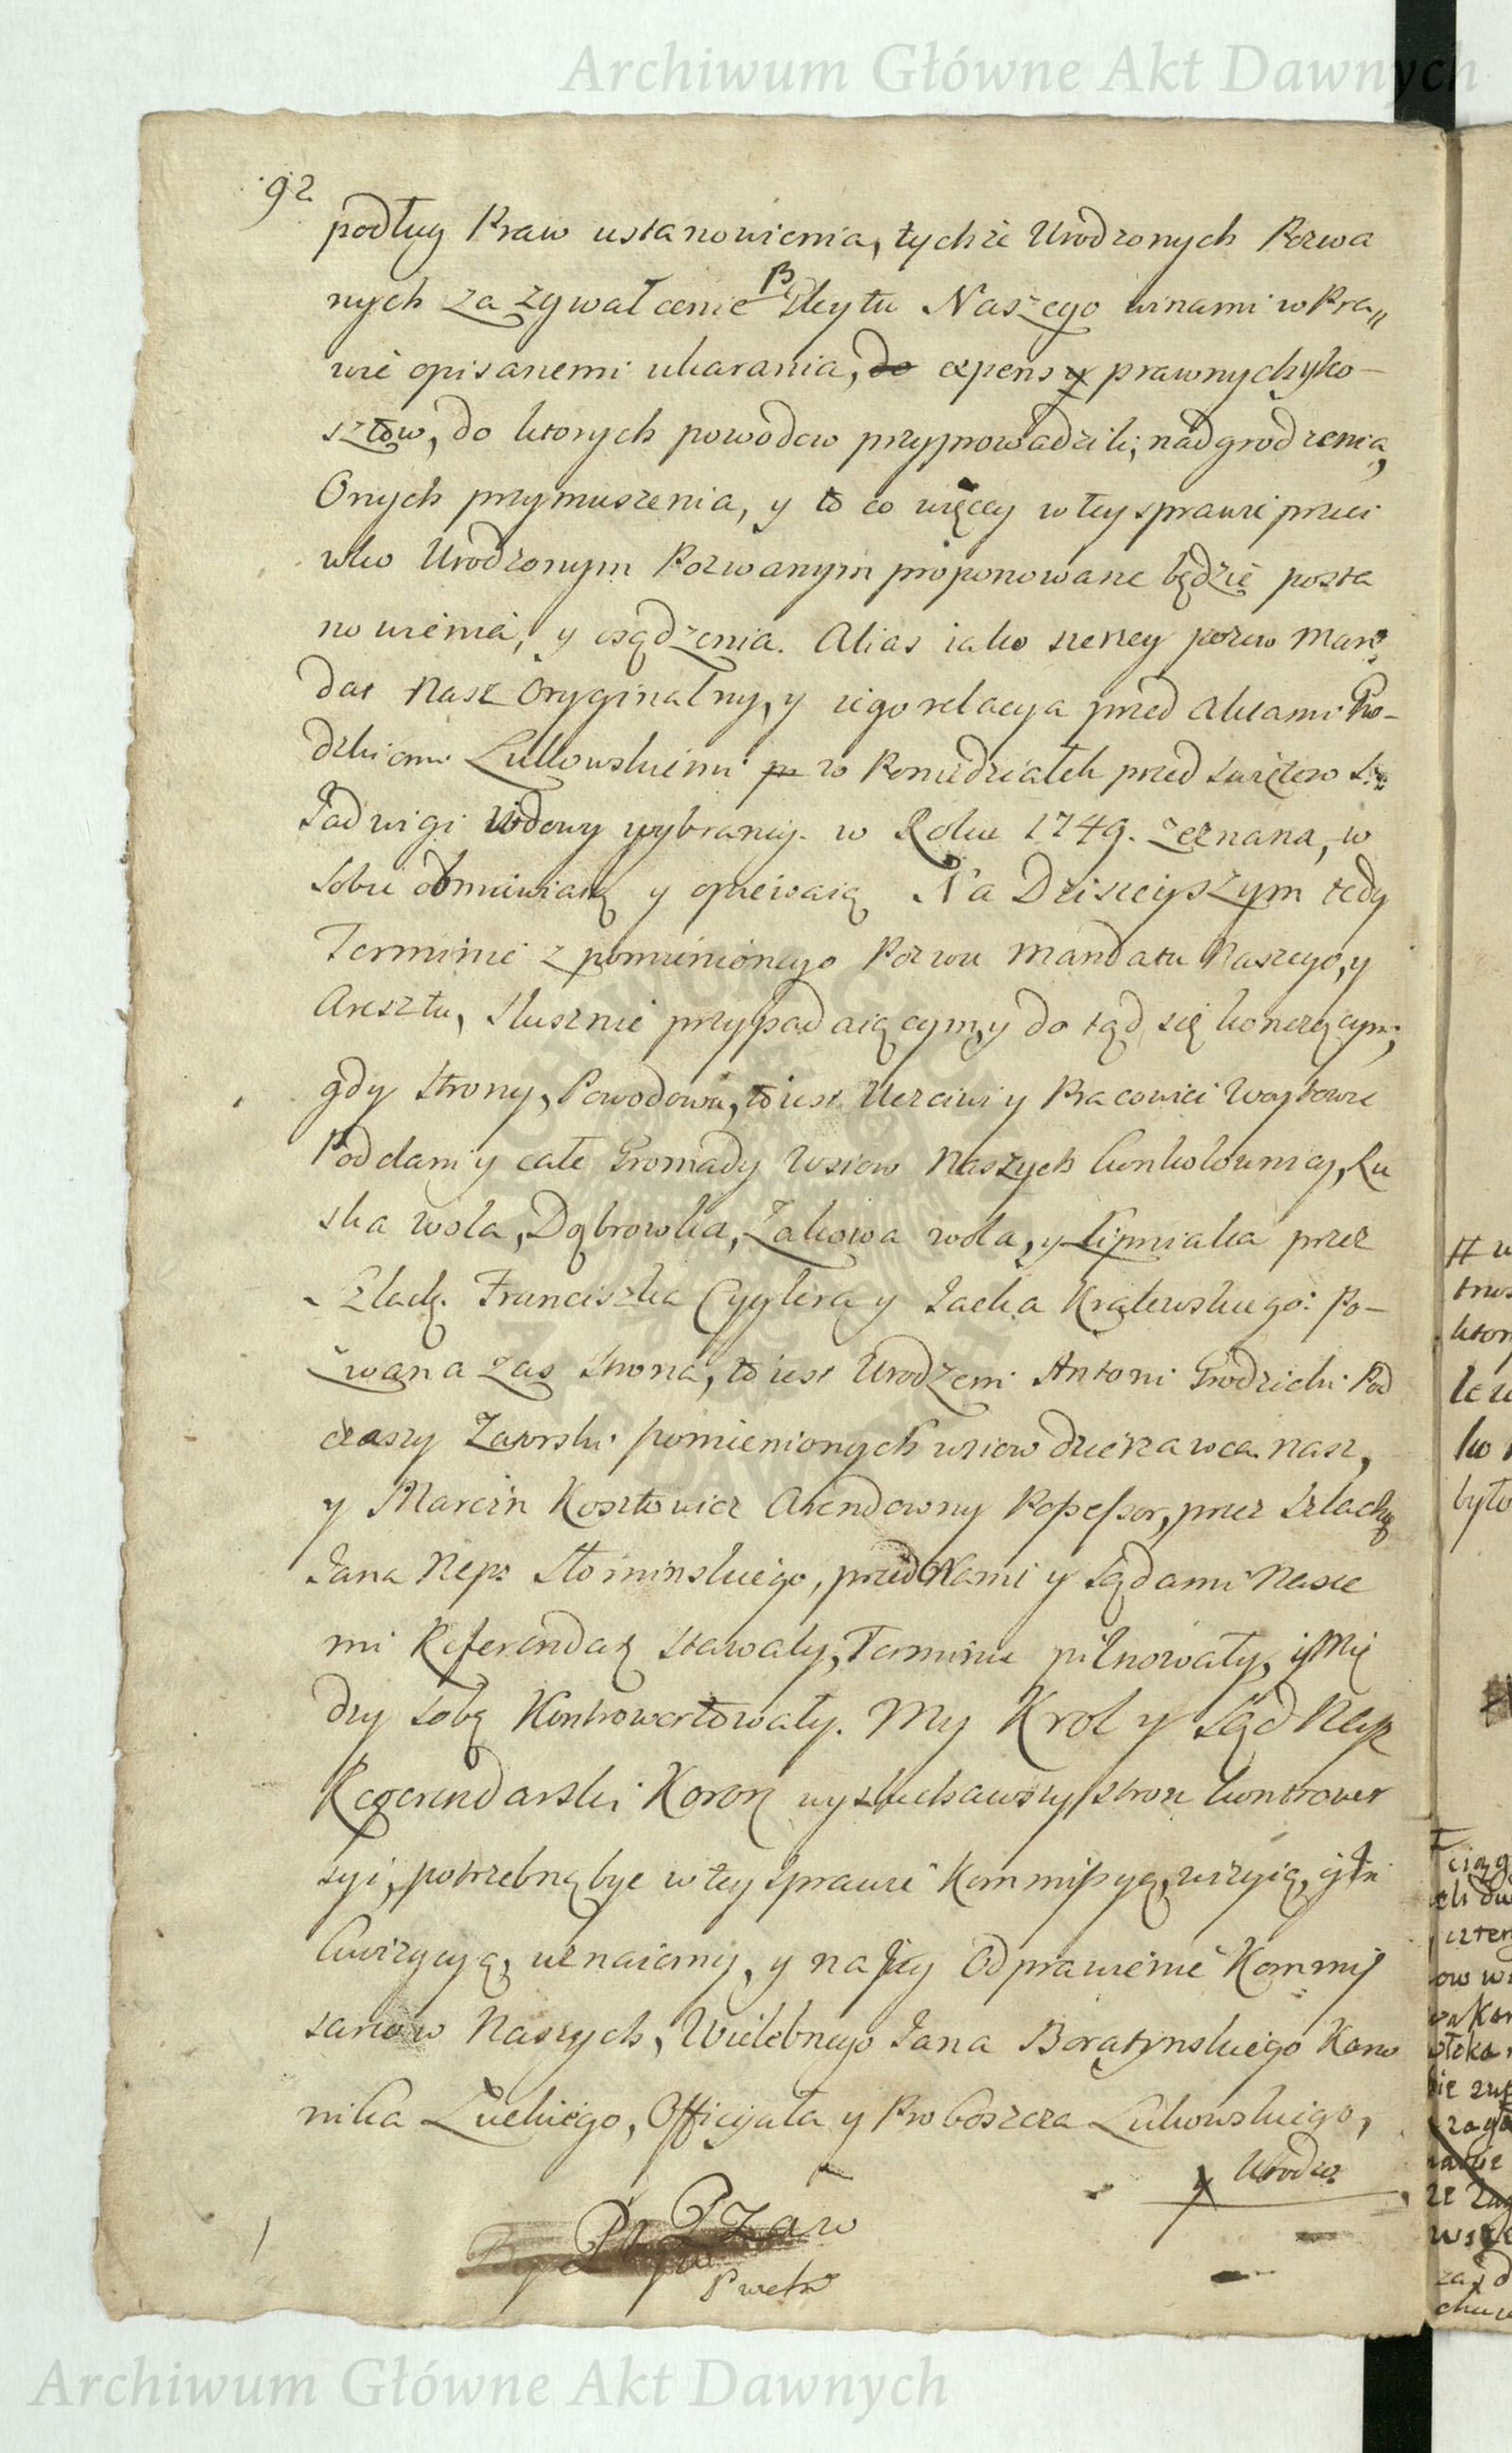 Archiwum Główne Akt Dawnych
92
podług Praw ustanowienia, tychże Urodzonych Pozwa
nych za zgwałcenie Gleytu Naszego winami w Pra„
wie opisanemi ukarania, do expens y prawnych y ko–
sztow, do ktorych powodow przyprowadzili, nadgrodzenia,
Onych przymuszenia, y to co więcey w tey sprawie przeci
wko Urodzonym Pozwanym proponowane będzie posta
nowienia, y osądzenia. Alias iako szerzey pozew Man
dat Nasz Oryginalny, y iego relacya przed Aktami Gro–
dzkiemi Łukowskiemi w Poniedziałek przed swiętem S.
Jadwigi Wdowy wybraney. w Roku 1749. zeznana, w
sobie obmawiaią y opiewaią Na Dzisieyszym tedy
Terminie z pomienionego Pozwu Mandatu Naszego, y
Aresztu, słusznie przypadaiącym, y do tąd się konczącym,
gdy strony, Powodowa, to iest Uczciwi y Pracowici Woytowie
Poddani y całe Gromady Wsiow Naszych Konkolownicy, Ru
ska wola, Dąbrowka, Zakowa wola, y Lipniaka przez
Szlach. Franciszka Cyglera y Jacka Krąlewskiego: Po–
zwana zas strona, to iest Urodzeni Antoni Grodzicki Pod
czaszy Zatorski pomienionych wsiow dzierzawca nasz,
y Marcin Kosztowicz Arendowny Possessor, przez Szlach
Jana Nep: Słominskiego, przed Nami y Sądami Nasze
mi Referendar stawały, Terminu pilnowały, y Mię
dzy sobą Kontrowertowały. My Krol y Sąd Nasz
Referendarski Koron wysłuchawszy stron kontrower
syi, potrzebną byc w tey sprawie Kommissyą, wizyią, y In
kwizycyą, uznaiemy, y na Jey Odprawienie Kommis
sarzow Naszych, Wielebnego Jana Borątynskiego Kano
nika Łuckiego, Officyała y Proboszcza Łukowskiego,
y Urodz
Archiwum Główne Akt Dawnych